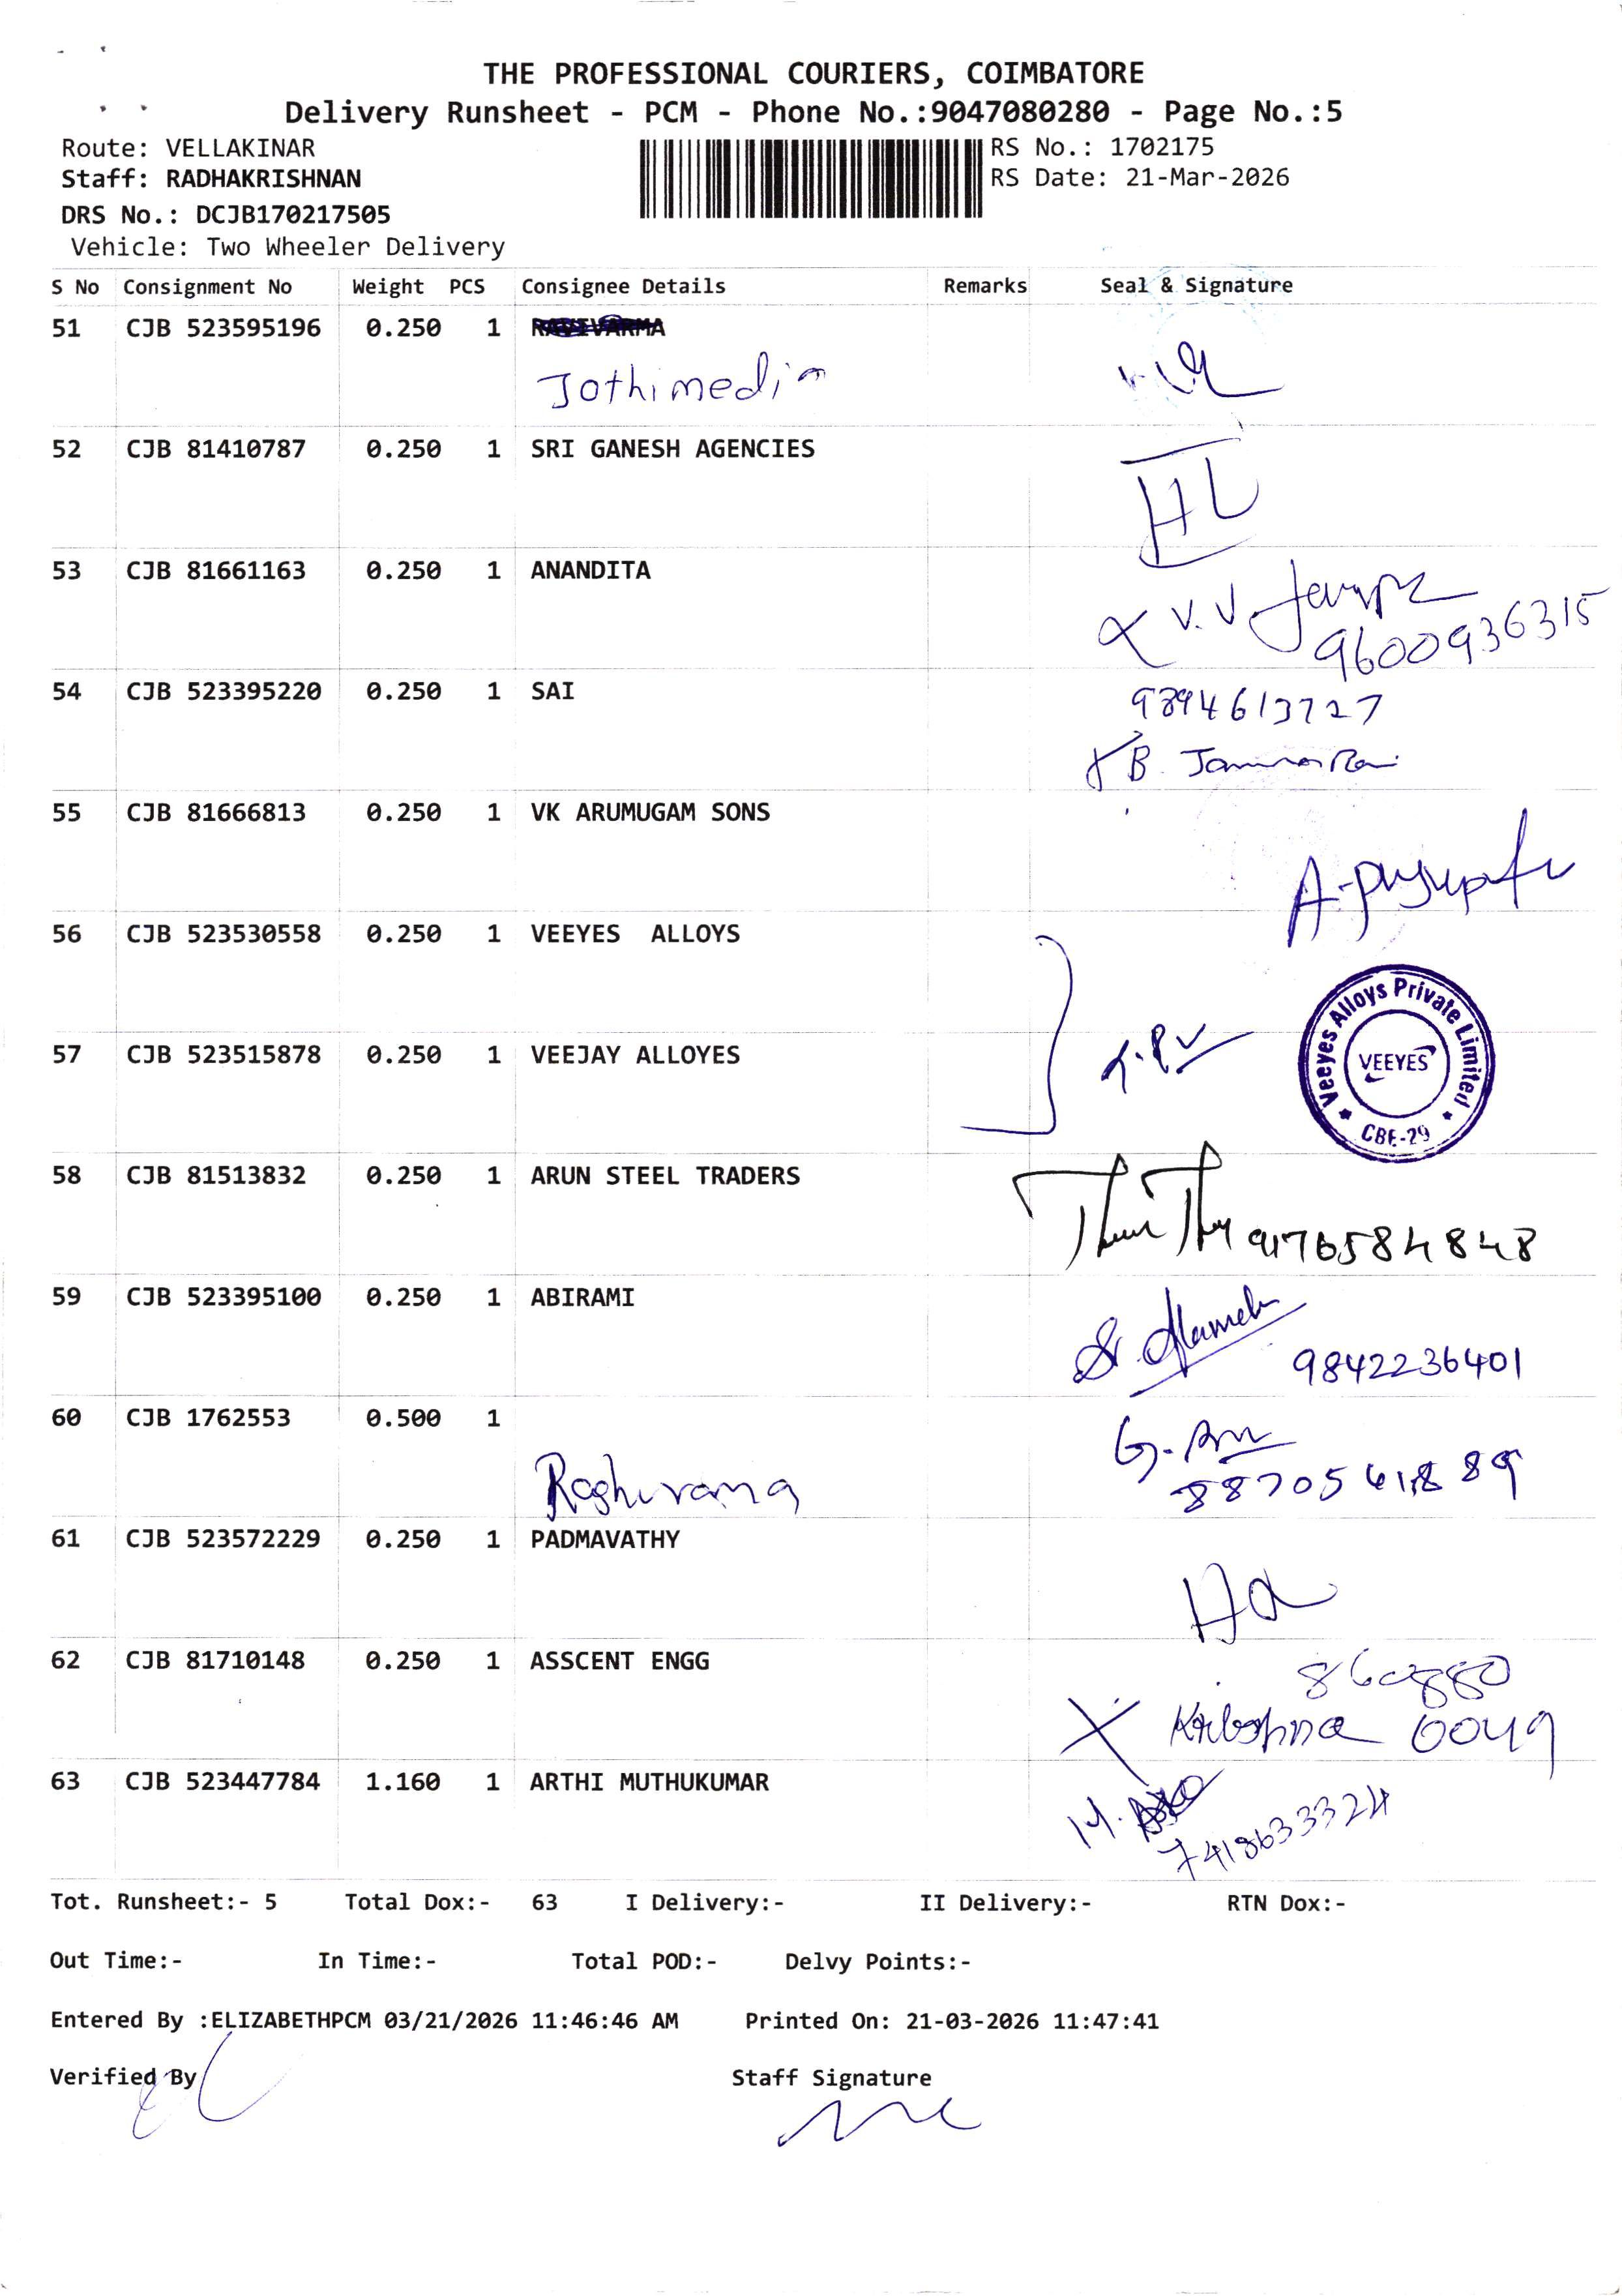 THE PROFESSIONAL COURIERS, COIMBATORE
Delivery Runsheet - PCM - Phone No.:9047080280 - Page No.:5
Route: VELLAKINAR
RS No.: 1702175
Staff: RADHAKRISHNAN
RS Date: 21-Mar-2026
DRS No.: DCJB170217505
Vehicle: Two Wheeler Delivery
S No Consignment No Weight PCS Consignee Details Remarks Seal & Signature
51 CJB 523595196 0.250 1
Jothimedia
52 CJB 81410787 0.250 1 SRI GANESH AGENCIES
53 CJB 81661163 0.250 1 ANANDITA
V.V.
9600936315
54 CJB 523395220 0.250 1 SAI
9894613727
B.
55 CJB 81666813 0.250 1 VK ARUMUGAM SONS
56 CJB 523530558 0.250 1 VEEYES ALLOYS
Veeyes Alloys Private Limited
VEEYES
CBE-29
57 CJB 523515878 0.250 1 VEEJAY ALLOYES
58 CJB 81513832 0.250 1 ARUN STEEL TRADERS
59 CJB 523395100 0.250 1 ABIRAMI
9842236401
60 CJB 1762553 0.500 1
Raghurama
61 CJB 523572229 0.250 1 PADMAVATHY
62 CJB 81710148 0.250 1 ASSCENT ENGG
Krishna 0049
63 CJB 523447784 1.160 1 ARTHI MUTHUKUMAR
7418633324
Tot. Runsheet:- 5 Total Dox:- 63 I Delivery:- II Delivery:- RTN Dox:-
Out Time:- In Time:- Total POD:- Delvy Points:-
Entered By :ELIZABETHPCM 03/21/2026 11:46:46 AM Printed On: 21-03-2026 11:47:41
Verified By Staff Signature